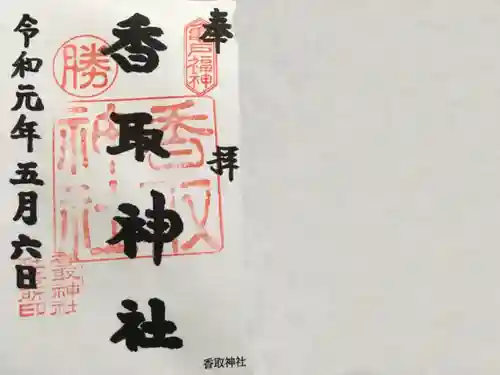 奉拝
亀戸福神
香取神社
勝
香取神社
令和元年五月六日
香取神社